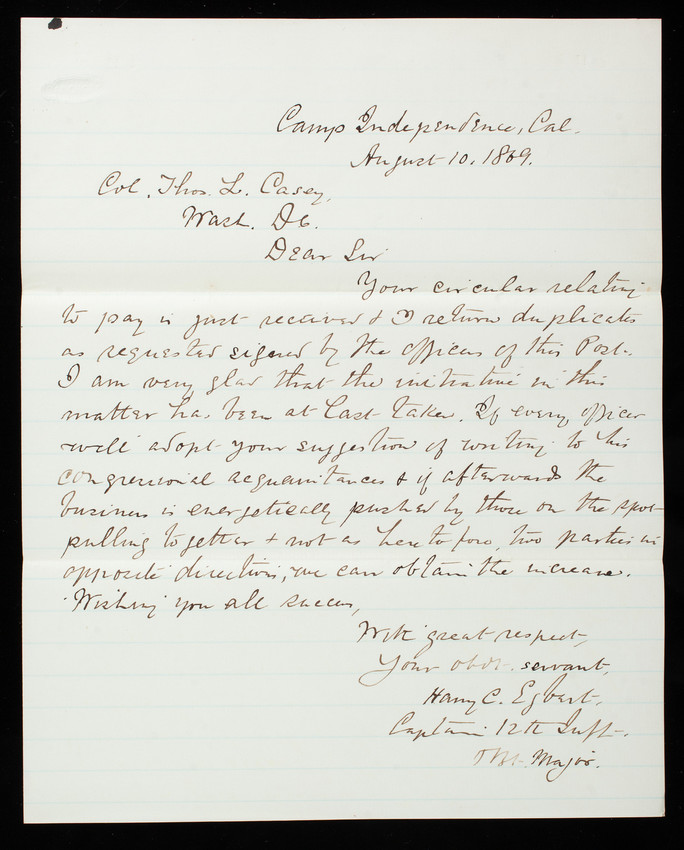 Camp Independence, Cal.
August 10, 1869.
Col. Thos. L. Casey,
Wash. D.C.
Dear Sir
Your circular relating
to pay is just received & I return duplicates
as requested signed by the officers of this Post.
I am very glad that the initiative in this
matter has been at last taken. If every officer
will adopt your suggestion of writing to his
congressional acquaintances & if afterwards the
business is energetically pushed by those on the spot
pulling together & not as heretofore, two parties in
opposite directions, we can obtain the increase.
Wishing you all success,
With great respect,
Your obdt. servant,
Harry C. Egbert.
Captain 12th Inft.
Bt. Major.